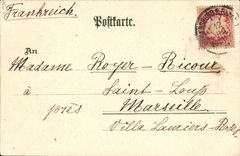 Frankreich.
Postkarte.
An
Madame Royer-Ricour
à Saint-Loup
près Marseille.
Villa